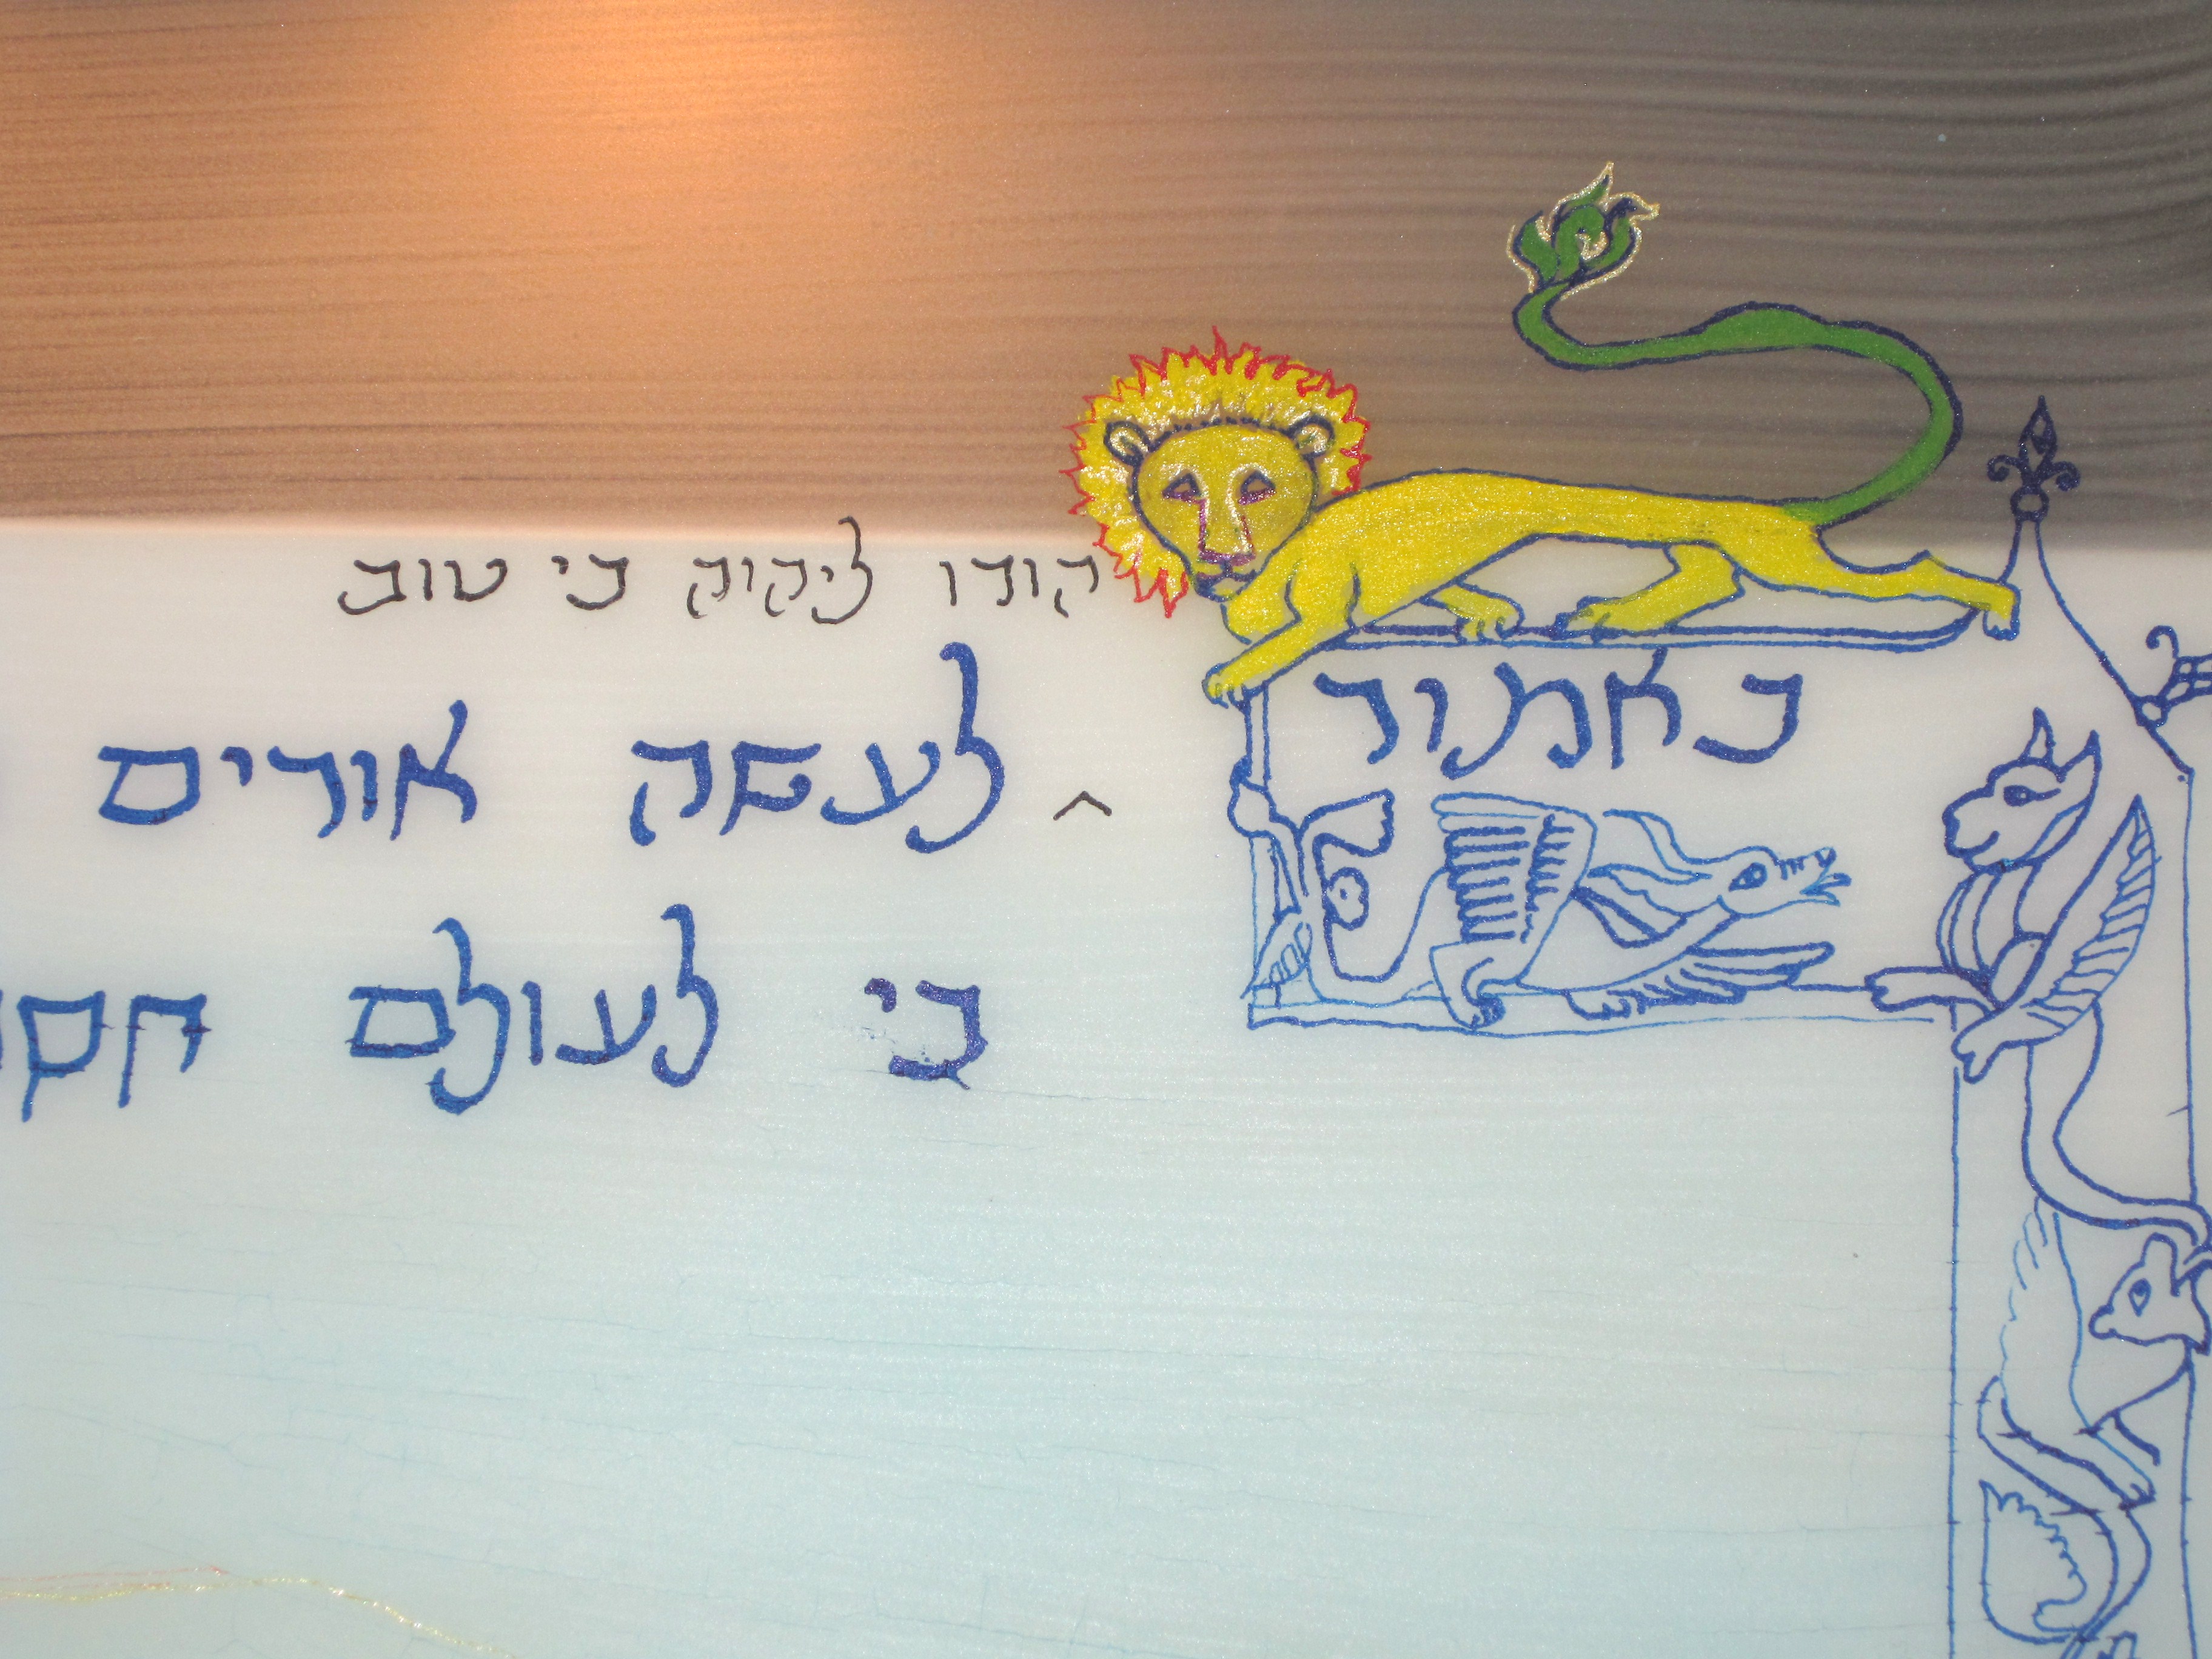 הודו ליהוה כי טוב
כאמור ^ לעשה אורים
כי לעולם חס